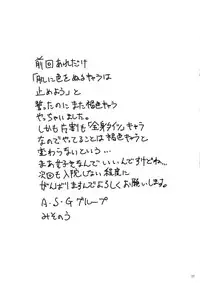 前回あれだけ
「肌に色をぬるキャラは
止めよう」と
誓ったのにまた褐色キャラ
やっちゃいました。
しかも右割も「全身タイツ」キャラ
なのでやってることは褐色と
変わらないという…
まあ好きなんでいいんですけどね…
次回も入院しない程度に
がんばりますんでよろしくお願いします。
A・S・Gグループ
みそのう